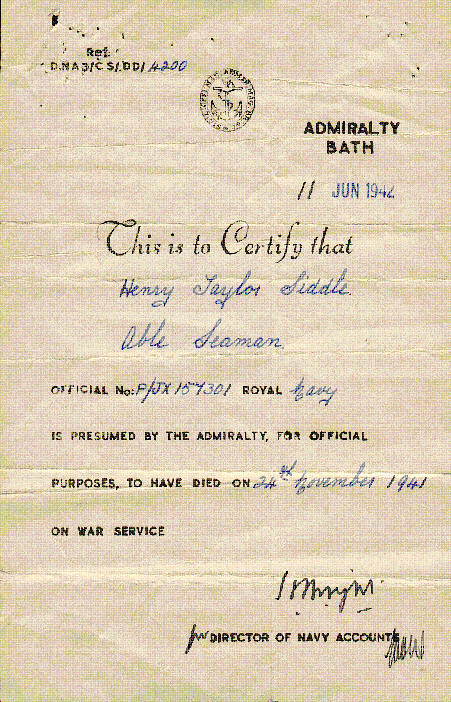 Ref.
D.N.A.3/C.S/.DD/ 4200
ADMIRALTY
BATH
11 JUN 1942
This is to Certify that
Henry Taylor Siddle.
Able Seaman.
OFFICIAL No: P/JX 157301 ROYAL Navy
IS PRESUMED BY THE ADMIRALTY, FOR OFFICIAL
PURPOSES, TO HAVE DIED ON 24th November 1941
ON WAR SERVICE
for DIRECTOR OF NAVY ACCOUNTS